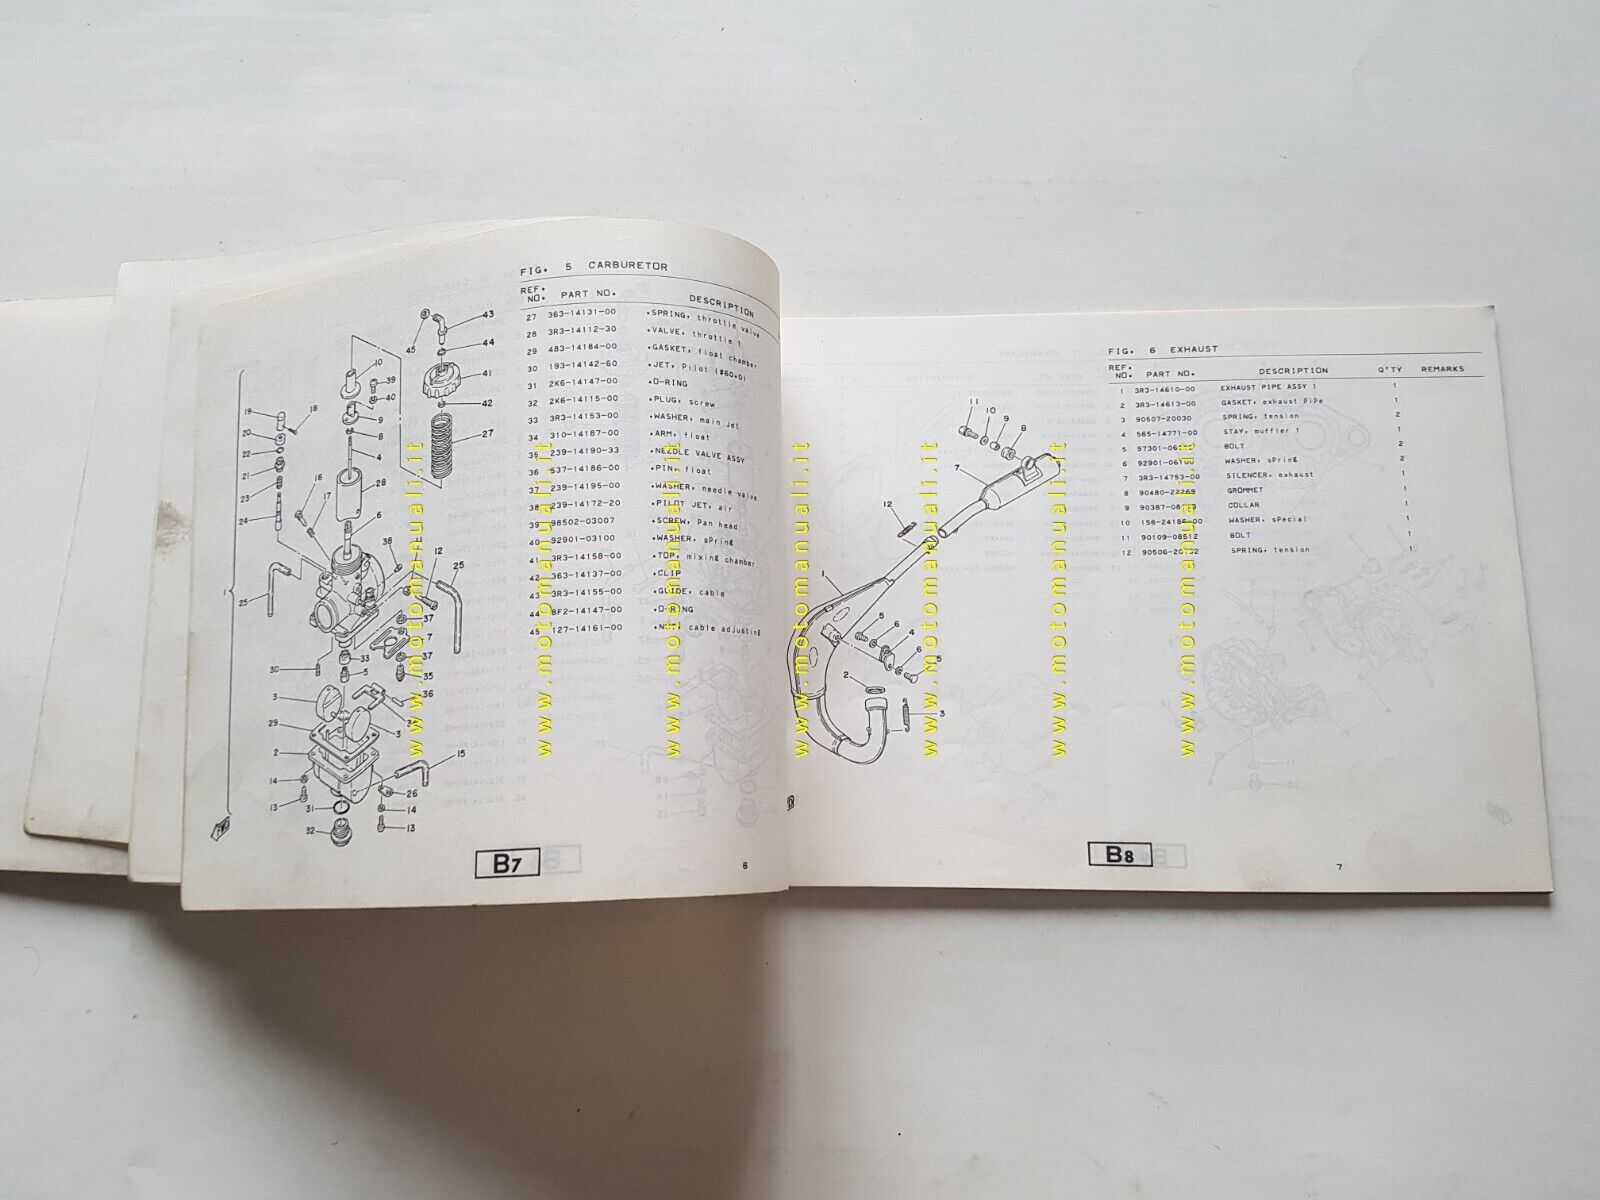 FIG. 5 CARBURETOR
REF. NO. PART NO. DESCRIPTION
27 363-14131-00 .SPRING, throttle valve
28 3R3-14112-30 .VALVE, throttle 1
29 483-14184-00 .GASKET, float chamber
30 193-14142-60 .JET, Pilot (#60.0)
31 2K6-14147-00 .O-RING
32 2K6-14115-00 .PLUG, screw
33 3R3-14153-00 .WASHER, main jet
34 310-14187-00 .ARM, float
35 239-14190-33 .NEEDLE VALVE ASSY
36 537-14186-00 .PIN, float
37 239-14195-00 .WASHER, needle valve
38 239-14172-20 .PILOT JET, air
39 98502-03007 .SCREW, Pan head
40 92901-03100 .WASHER, sPring
41 3R3-14158-00 .TOP, mixing chamber
42 363-14137-00 .CLIP
43 3R3-14155-00 .GUIDE, cable
44 8F2-14147-00 .O-RING
45 127-14161-00 .NUT, cable adjusting
B7
6
FIG. 6 EXHAUST
REF. NO. PART NO. DESCRIPTION Q'TY REMARKS
1 3R3-14610-00 EXHAUST PIPE ASSY 1 1
2 3R3-14613-00 GASKET, exhaust PiPe 1
3 90507-20030 SPRING, tension 2
4 565-14771-00 STAY, muffler 1 1
5 97301- BOLT 2
6 92901-06100 WASHER, sPring 2
7 3R3-14753-00 SILENCER, exhaust 1
8 90480-22269 GROMMET 1
9 COLLAR 1
10 156-24186-00 WASHER, sPecial 1
11 90109-08512 BOLT 1
12 SPRING, tension 1
B8
7
www.motomanuali.it
www.motomanuali.it
www.motomanuali.it
www.motomanuali.it
www.motomanuali.it
www.motomanuali.it
www.motomanuali.it